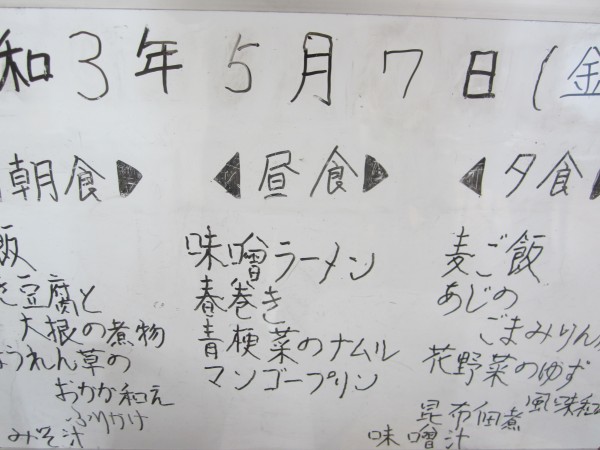 和3年5月7日(金
朝食
飯
豆腐と
大根の煮物
うれん草の
おかか和え
ふりかけ
みそ汁
昼食
味噌ラーメン
春巻き
青梗菜のナムル
マンゴープリン
夕食
麦ご飯
あじの
ごまみりん
花野菜のゆず
風味和
昆布佃煮
味噌汁